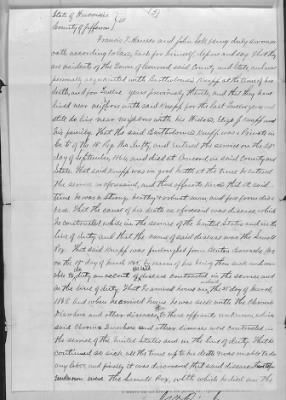 State of Wisconsin
County of Jefferson
Francis F. and John Cole being duly sworn on
oath according to law, each for himself deposes and say that they
are residents of the Town of Concord said County and State, and were
personally acquainted with Bartholomew Knapp at the time of his
death, and for Twelve years previously thereto, and that they have
lived near neighbors with said Knapp for the last Twelve years and
still do live near neighbors with his Widow Eliza Knapp and
his family. That the said Bartholomew Knapp was a Private in
Co. of the 18 Reg. and entered the service on the
day of September 1864 and died at Concord in said County and
State. That said Knapp was in good health at the time he entered
the service as aforesaid, and these affiants that at said
time he was a strong healthy robust man and free from disease
That the cause of his death as aforesaid was disease which
he contracted while in the service of the United States and in the
line of duty and that the name of said disease was the Small
Pox. That said Knapp was furloughed from
on the day of March 1865 by reason of his being then sick and un-
able to do duty on account of disease contracted in the service and
in the line of duty. That he arrived home on the 25 day of March
1865 and when he arrived home he was sick with the Chronic
Diarrhea and other disease to these affiants unknown, and
said Chronic Diarrhea and other disease were contracted in
the service of the United States and in the line of duty. That he
continued so sick all the time up to his death was unable to do
any labor and finally it was discovered that said disease
unknown was the Small Pox, with which he died on the